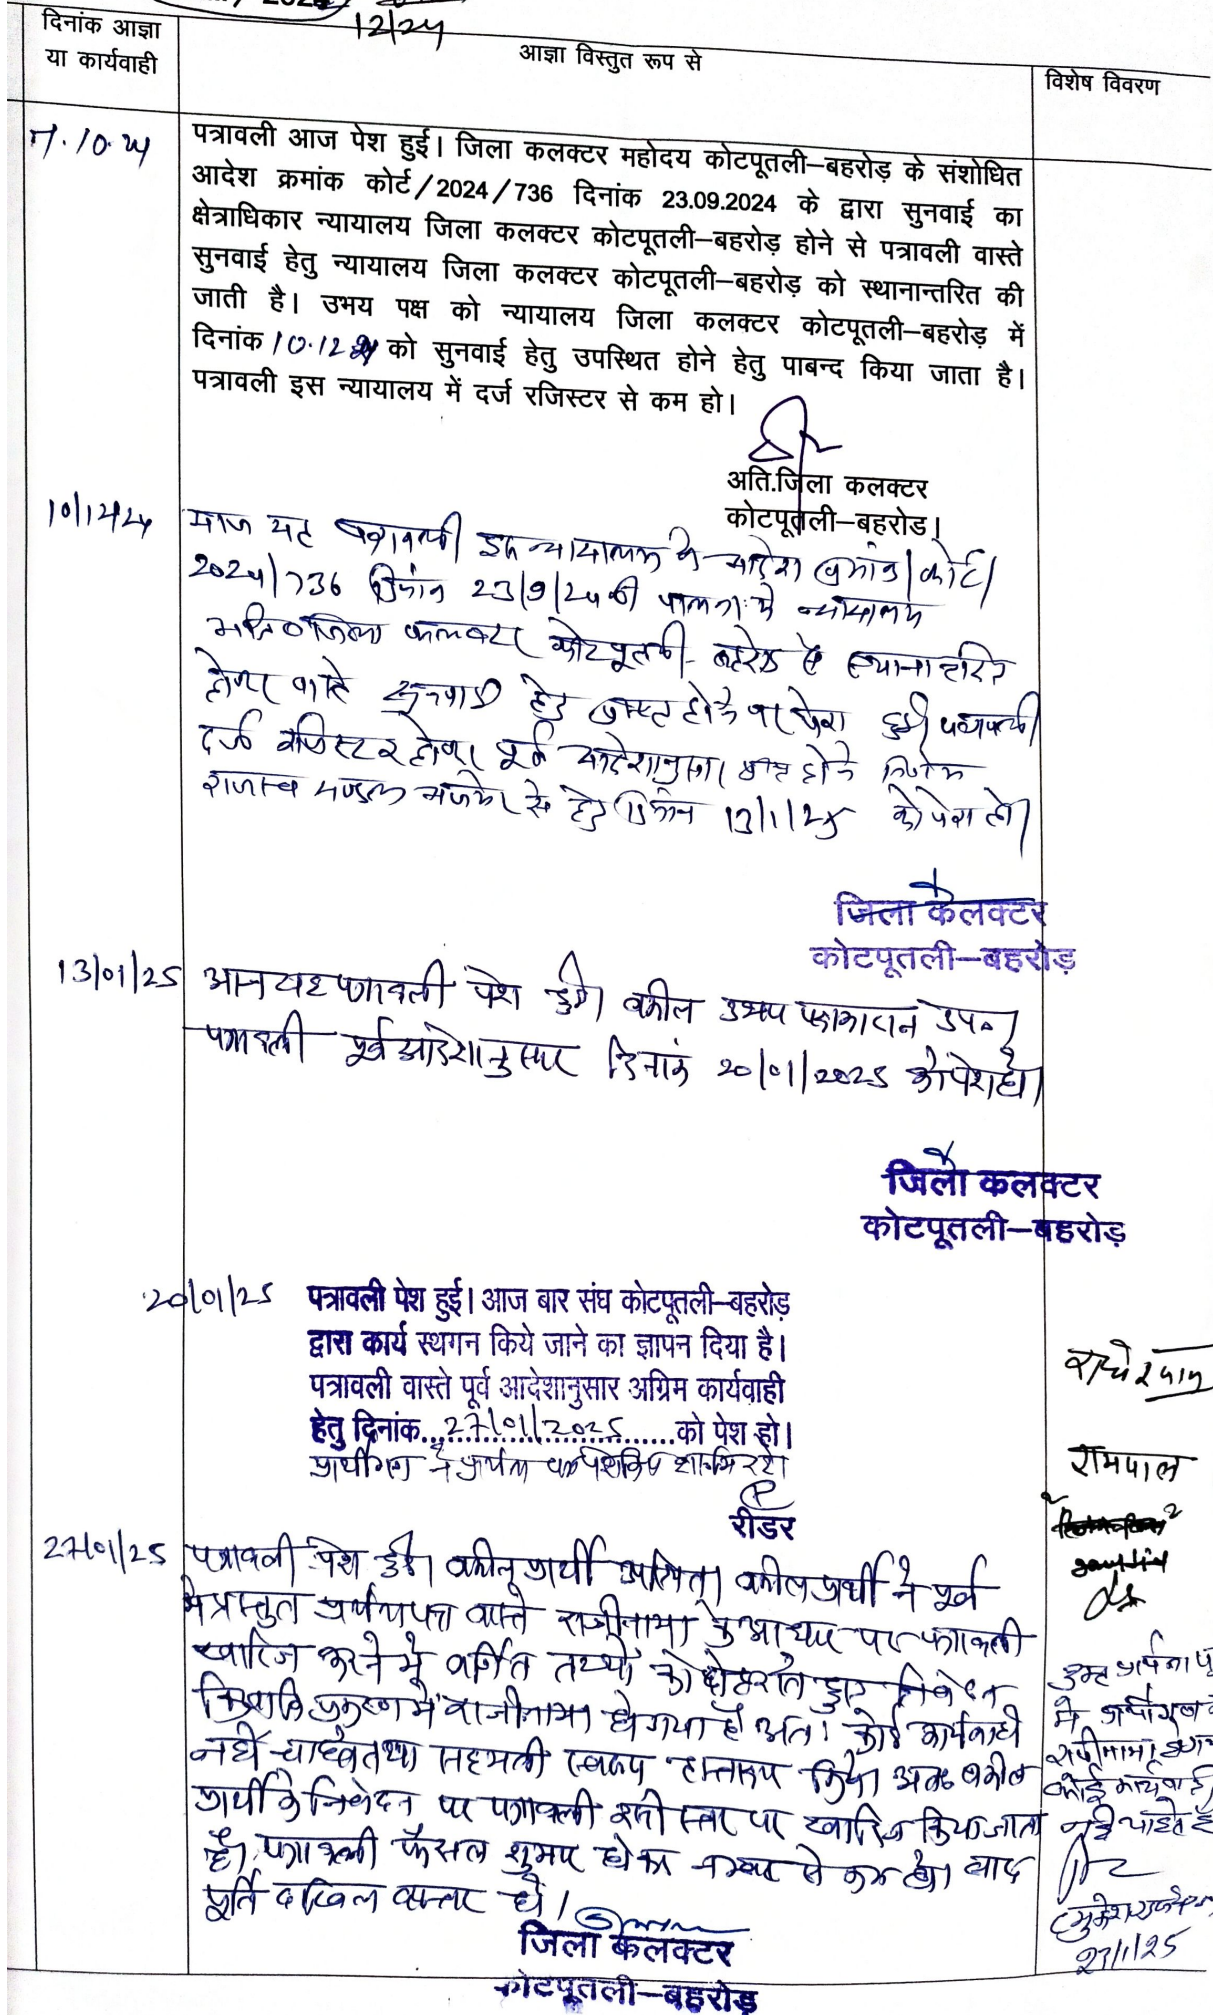 12/24
दिनांक आज्ञा
या कार्यवाही
आज्ञा विस्तुत रूप से
विशेष विवरण
पत्रावली आज पेश हुई। जिला कलक्टर महोदय कोटपूतली–बहरोड़ के संशोधित
आदेश क्रमांक कोर्ट/2024/736 दिनांक 23.09.2024 के द्वारा सुनवाई का
क्षेत्राधिकार न्यायालय जिला कलक्टर कोटपूतली–बहरोड़ होने से पत्रावली वास्ते
सुनवाई हेतु न्यायालय जिला कलक्टर कोटपूतली–बहरोड़ को स्थानान्तरित की
जाती है। उभय पक्ष को न्यायालय जिला कलक्टर कोटपूतली–बहरोड़ में
दिनांक 10.12.24 को सुनवाई हेतु उपस्थित होने हेतु पाबन्द किया जाता है।
पत्रावली इस न्यायालय में दर्ज रजिस्टर से कम हो।
अति.जिला कलक्टर
कोटपूतली–बहरोड।
10/12/24
आज यह पत्रावली इस न्यायालय के आदेश क्रमांक/कोर्ट/
2024/736 दिनांक 23/9/24 की पालना में न्यायालय
अति० जिला कलक्टर कोटपूतली-बहरोड से स्थानान्तरित
होकर वास्ते सुनवाई हेतु प्राप्त होने पर पेश हुई। पत्रावली
दर्ज रजिस्टर होकर पूर्व आदेशानुसार प्राप्त होने निर्णय
राजस्व मण्डल अजमेर से हेतु दिनांक 13/1/25 को पेश हो।
जिला कलक्टर
कोटपूतली–बहरोड़
13/01/25
आज यह पत्रावली पेश हुई। वकील उभय पक्षकारान उप०।
पत्रावली पूर्व आदेशानुसार दिनांक 20/01/2025 को पेश हो।
जिला कलक्टर
कोटपूतली–बहरोड़
20/01/25
पत्रावली पेश हुई। आज बार संघ कोटपूतली–बहरोड़
द्वारा कार्य स्थगन किये जाने का ज्ञापन दिया है।
पत्रावली वास्ते पूर्व आदेशानुसार अग्रिम कार्यवाही
हेतु दिनांक...27/01/2025...को पेश हो।
प्रार्थीगण ने प्रार्थना पत्र पेश किया शामिल रहे।
रीडर
रामपाल
27/01/25
पत्रावली पेश हुई। वकील प्रार्थी उपस्थित। वकील प्रार्थी ने पूर्व
में प्रस्तुत प्रार्थनापत्र वास्ते राजीनामा के आधार पर पत्रावली
खारिज करने में वर्णित तथ्यों को दोहराते हुए निवेदन
किया कि प्रकरण में राजीनामा हो गया है अतः कोई कार्यवाही
नहीं चाहते तथा सहमती स्वरूप हस्ताक्षर किया अतः वकील
प्रार्थी के निवेदन पर पत्रावली इसी स्तर पर खारिज किया जाता
है। पत्रावली फैसल शुमार होकर नम्बर से कम हो। बाद
पूर्ति दाखिल दफ्तर हो।
जिला कलक्टर
कोटपूतली–बहरोड़
में प्रार्थीगण
राजीनामा
कोई कार्यवाही
नही चाहते है
27/1/25